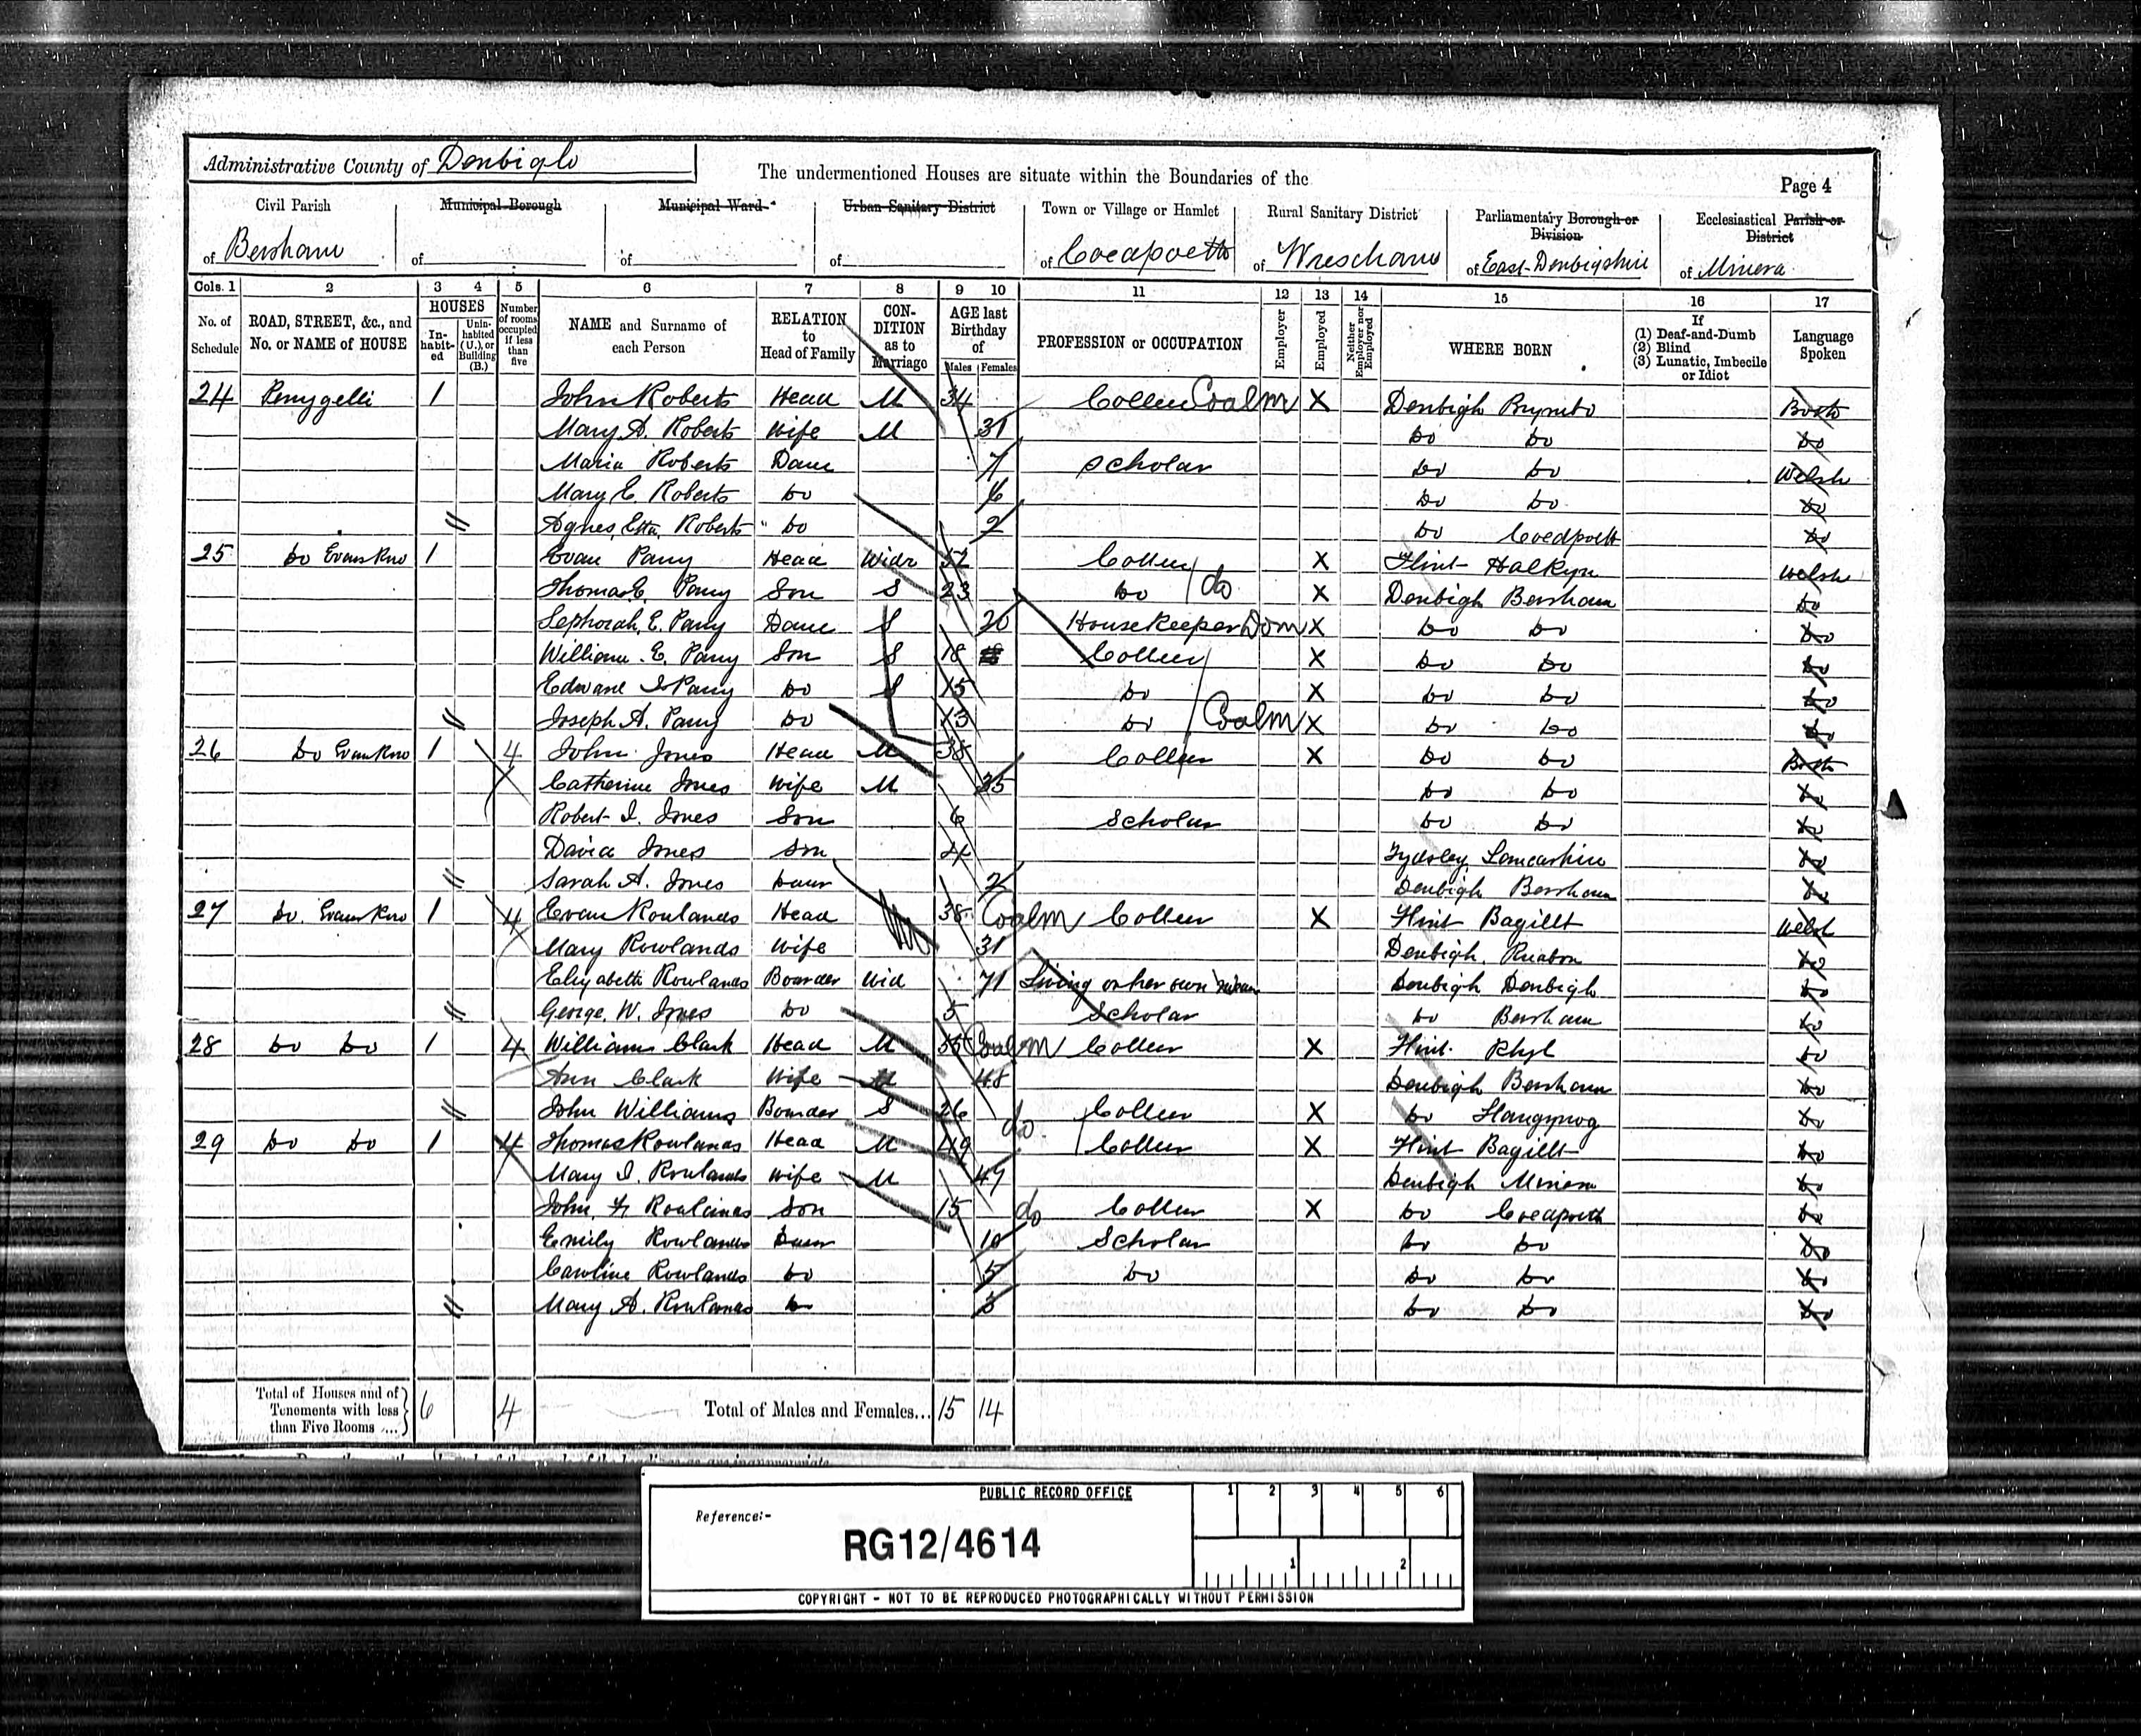 Administrative County of Denbigh
The undermentioned Houses are situate within the Boundaries of the
Page 4
Civil Parish Municipal Borough Municipal Ward Urban Sanitary District Town or Village or Hamlet Rural Sanitary District Parliamentary Borough or Division Ecclesiastical Parish or District
of Bersham of of of of Coedpoeth of Wrexham of East Denbighshire of Minera
Cols. 1 2 3 4 5 6 7 8 9 10 11 12 13 14 15 16 17
No. of Schedule ROAD, STREET, &c., and No. or NAME of HOUSE HOUSES In-habit-ed Unin-habited (U.), or Building (B.) Number of rooms occupied if less than five NAME and Surname of each Person RELATION to Head of Family CON-DITION as to Marriage AGE last Birthday of Males Females PROFESSION or OCCUPATION Employer Employed Neither Employer nor Employed WHERE BORN If (1) Deaf-and-Dumb (2) Blind (3) Lunatic, Imbecile or Idiot Language Spoken
24 Penygelli 1 John Roberts Head M 34 Collier Coal m X Denbigh Brymbo Both
Mary A. Roberts Wife M 31 Do Do Do
Maria Roberts Daur 7 Scholar Do Do Welsh
Mary E. Roberts Do 6 Do Do Do
Agnes Etta Roberts Do 2 Do Coedpoeth Do
25 Do Evans Row 1 Evan Parry Head Widr 52 Collier X Flint Halkyn Welsh
Thomas E. Parry Son S 23 Do do X Denbigh Bersham Do
Sephorah E. Parry Daur S 20 Housekeeper Dom X Do Do Do
William E. Parry Son S 18 Collier X Do Do Do
Edward I Parry Do S 15 Do X Do Do Do
Joseph A. Parry Do 13 Do Coal m X Do Do Do
26 Do Evans Row 1 4 John Jones Head M 38 Collier X Do Do Both
Catherine Jones Wife M 35 Do Do Do
Robert I. Jones Son 6 Scholar Do Do Do
David Jones Son 4 Tydsley Lancashire Do
Sarah A. Jones Daur 2 Denbigh Bersham Do
27 Do. Evans Row 1 4 Evan Rowlands Head 38 Coal m Collier X Flint Bagillt Welsh
Mary Rowlands Wife 31 Denbigh Ruabon Do
Elizabeth Rowlands Boarder Wid 71 Living on her own means Denbigh Denbigh Do
George W. Jones Do 5 Scholar Do Bersham Do
28 Do Do 1 4 William Clark Head M 55 Coal m Collier X Flint Rhyl Do
Ann Clark Wife M 48 Denbigh Bersham Do
John Williams Boarder S 26 do Collier X Do Llangynog Do
29 Do Do 1 4 Thomas Rowlands Head M 49 Collier X Flint Bagillt Do
Mary I. Rowlands Wife M 47 Denbigh Minera Do
John H Rowlands Son 15 do Collier X Do Coedpoeth Do
Emily Rowlands Daur 10 Scholar Do Do Do
Caroline Rowlands Do 5 Do Do Do Do
Mary A. Rowlands Do 3 Do Do Do
Total of Houses and of Tenements with less than Five Rooms ... 6 4 Total of Males and Females... 15 14
PUBLIC RECORD OFFICE 1 2 3 4 5 6
Reference:-
RG12/4614
1 2
COPYRIGHT - NOT TO BE REPRODUCED PHOTOGRAPHICALLY WITHOUT PERMISSION